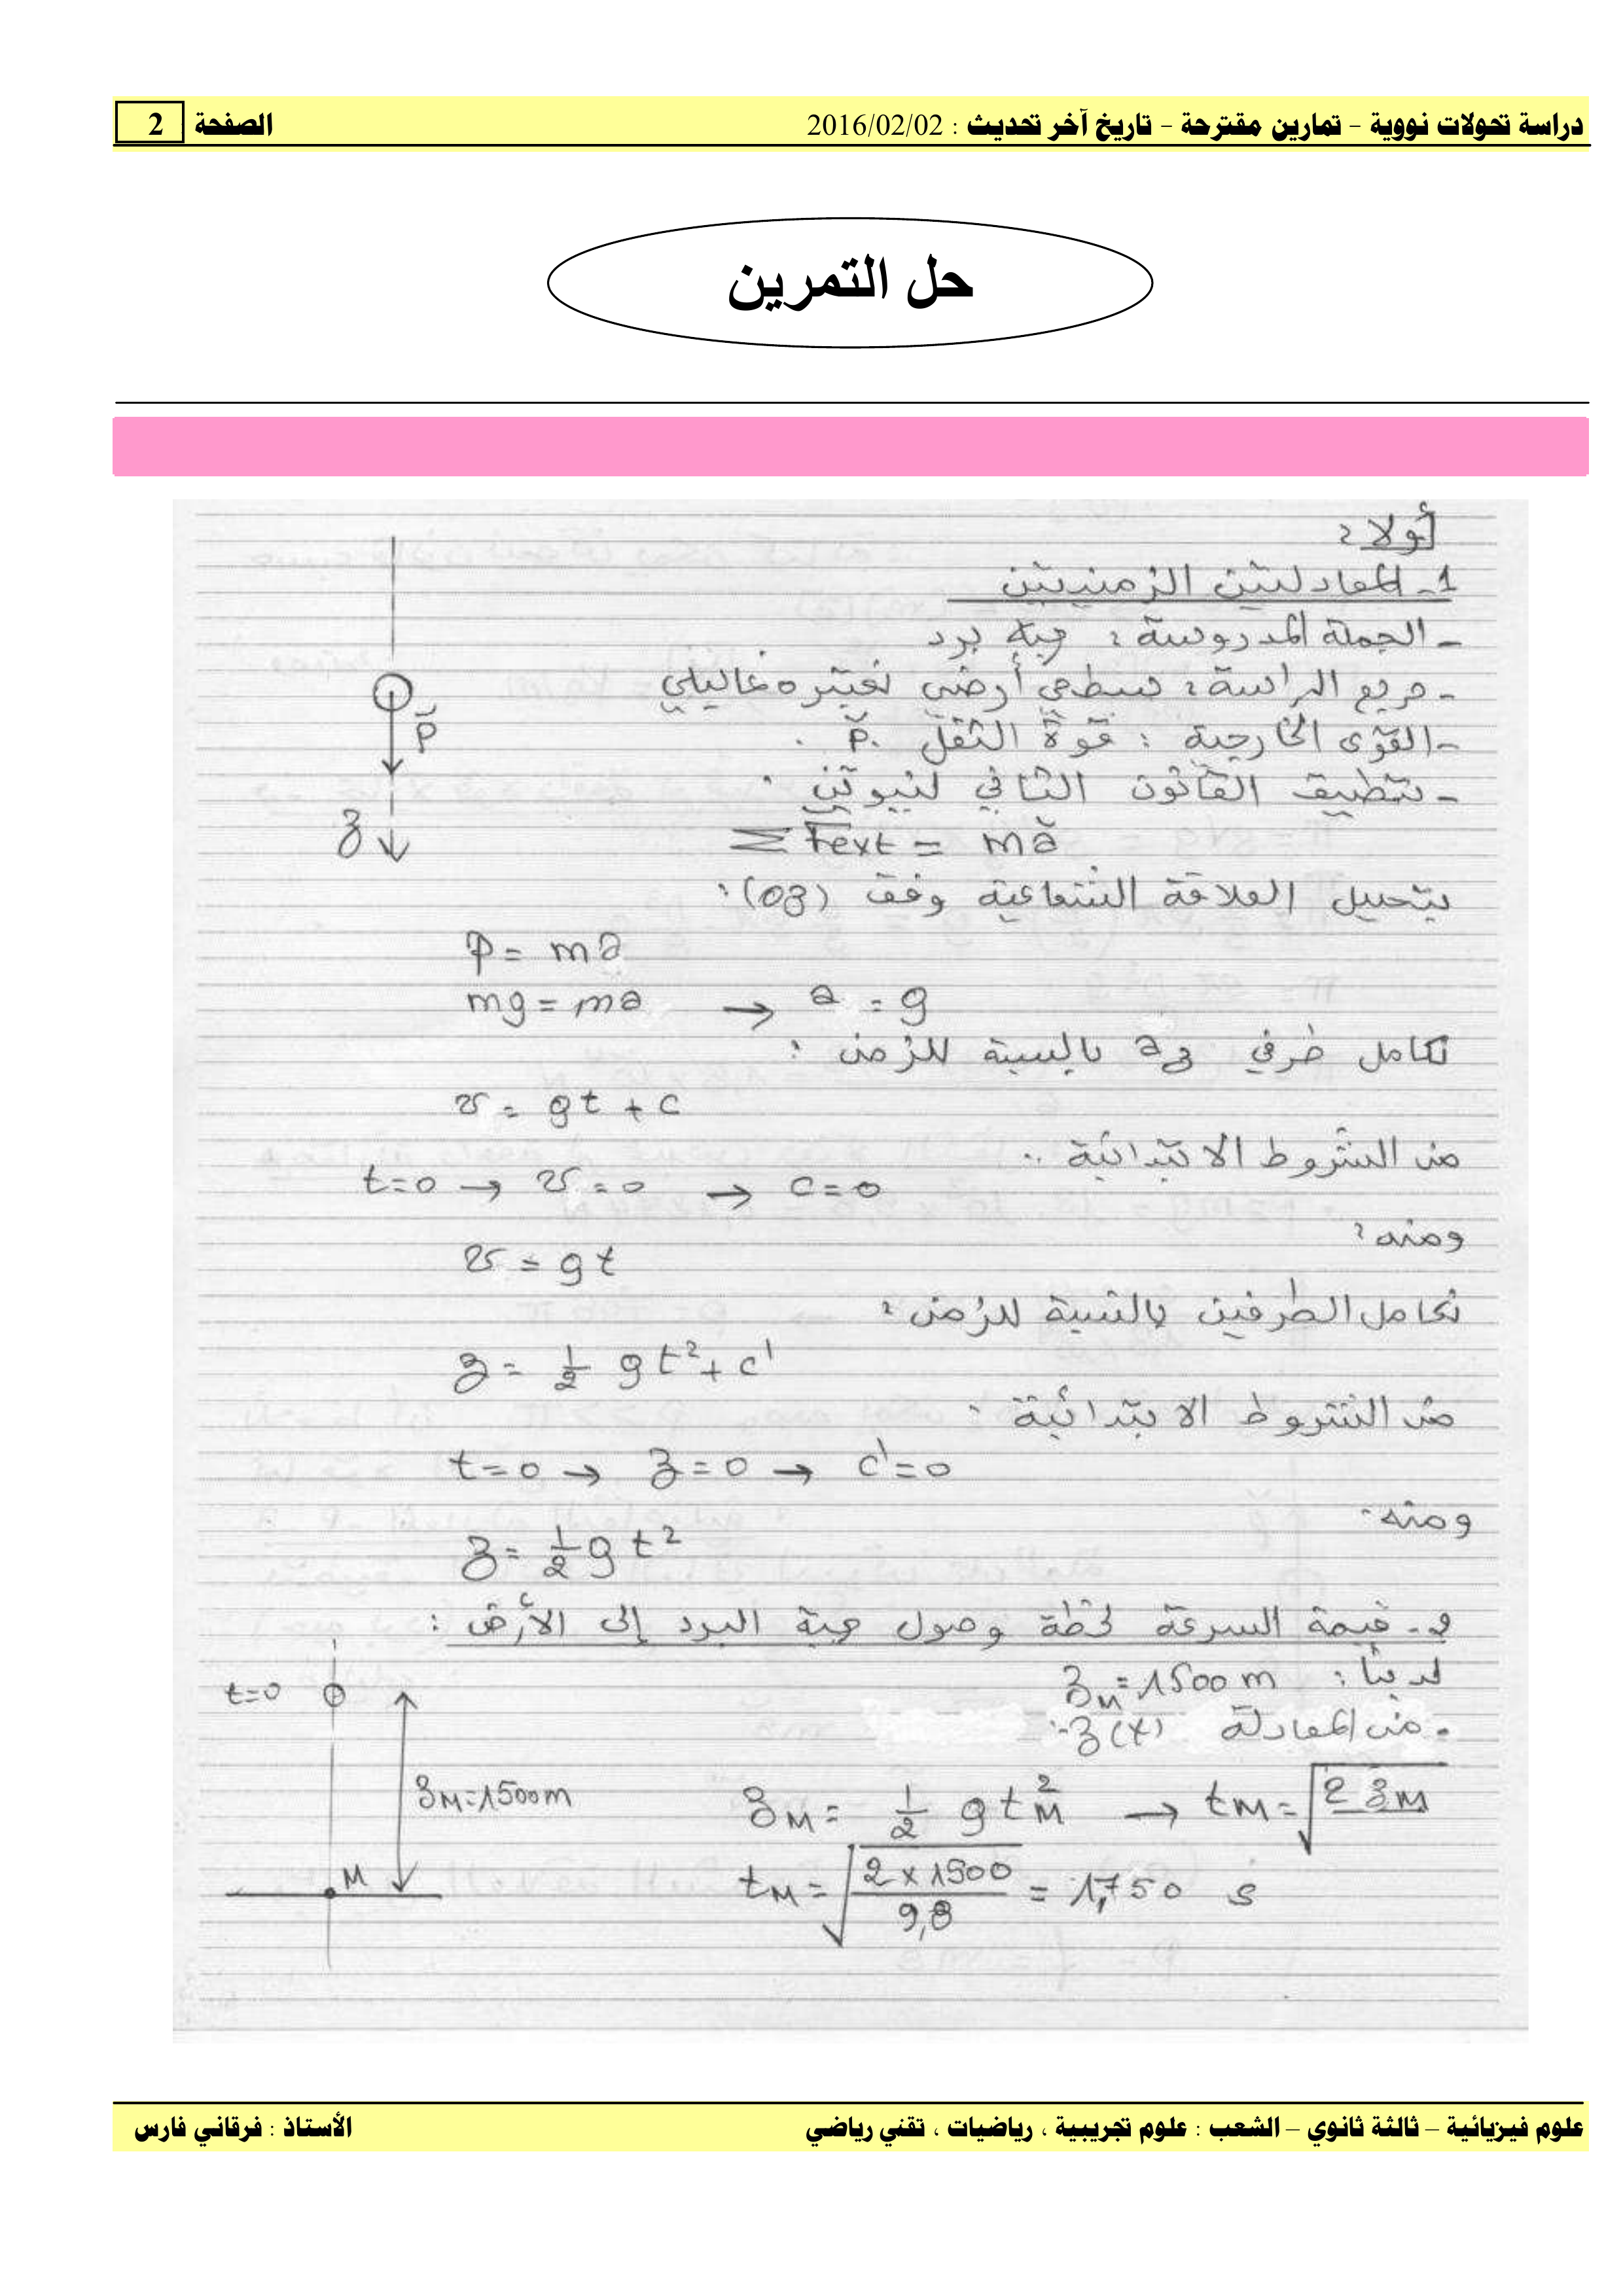 دراسة تحولات نووية – تمارين مقترحة – تاريخ آخر تحديث : 2016/02/02 الصفحة 2
حل التمرين
أولا :
1- المعادلتين الزمنيتين
- الجملة المدروسة : حبة برد
- مرجع الدراسة : سطحي أرضي نعتبره غاليلي
- القوى الخارجية : قوة الثقل P⃗ .
- بتطبيق القانون الثاني لنيوتن :
P⃗
z
Σ F⃗ext = m a⃗
بتحليل العلاقة الشعاعية وفق (oz) :
P = ma
mg = ma → a = g
نكامل طرفي a بالنسبة للزمن :
v = gt + c
من الشروط الابتدائية :
t=0 → v=0 → c=0
ومنه :
v = gt
نكامل الطرفين بالنسبة للزمن :
z = 1/2 g t² + c'
من الشروط الابتدائية :
t=0 → z=0 → c'=0
ومنه :
z = 1/2 g t²
2- قيمة السرعة لحظة وصول حبة البرد إلى الأرض :
لدينا : z_M = 1500 m
- من المعادلة z(t) :
t=0
z_M = 1500 m
M
z_M = 1/2 g t_M² → t_M = √(2 z_M)
t_M = √(2 × 1500 / 9,8) = 1,750 s
علوم فيزيائية – ثالثة ثانوي – الشعب : علوم تجريبية ، رياضيات ، تقني رياضي الأستاذ : فرقاني فارس